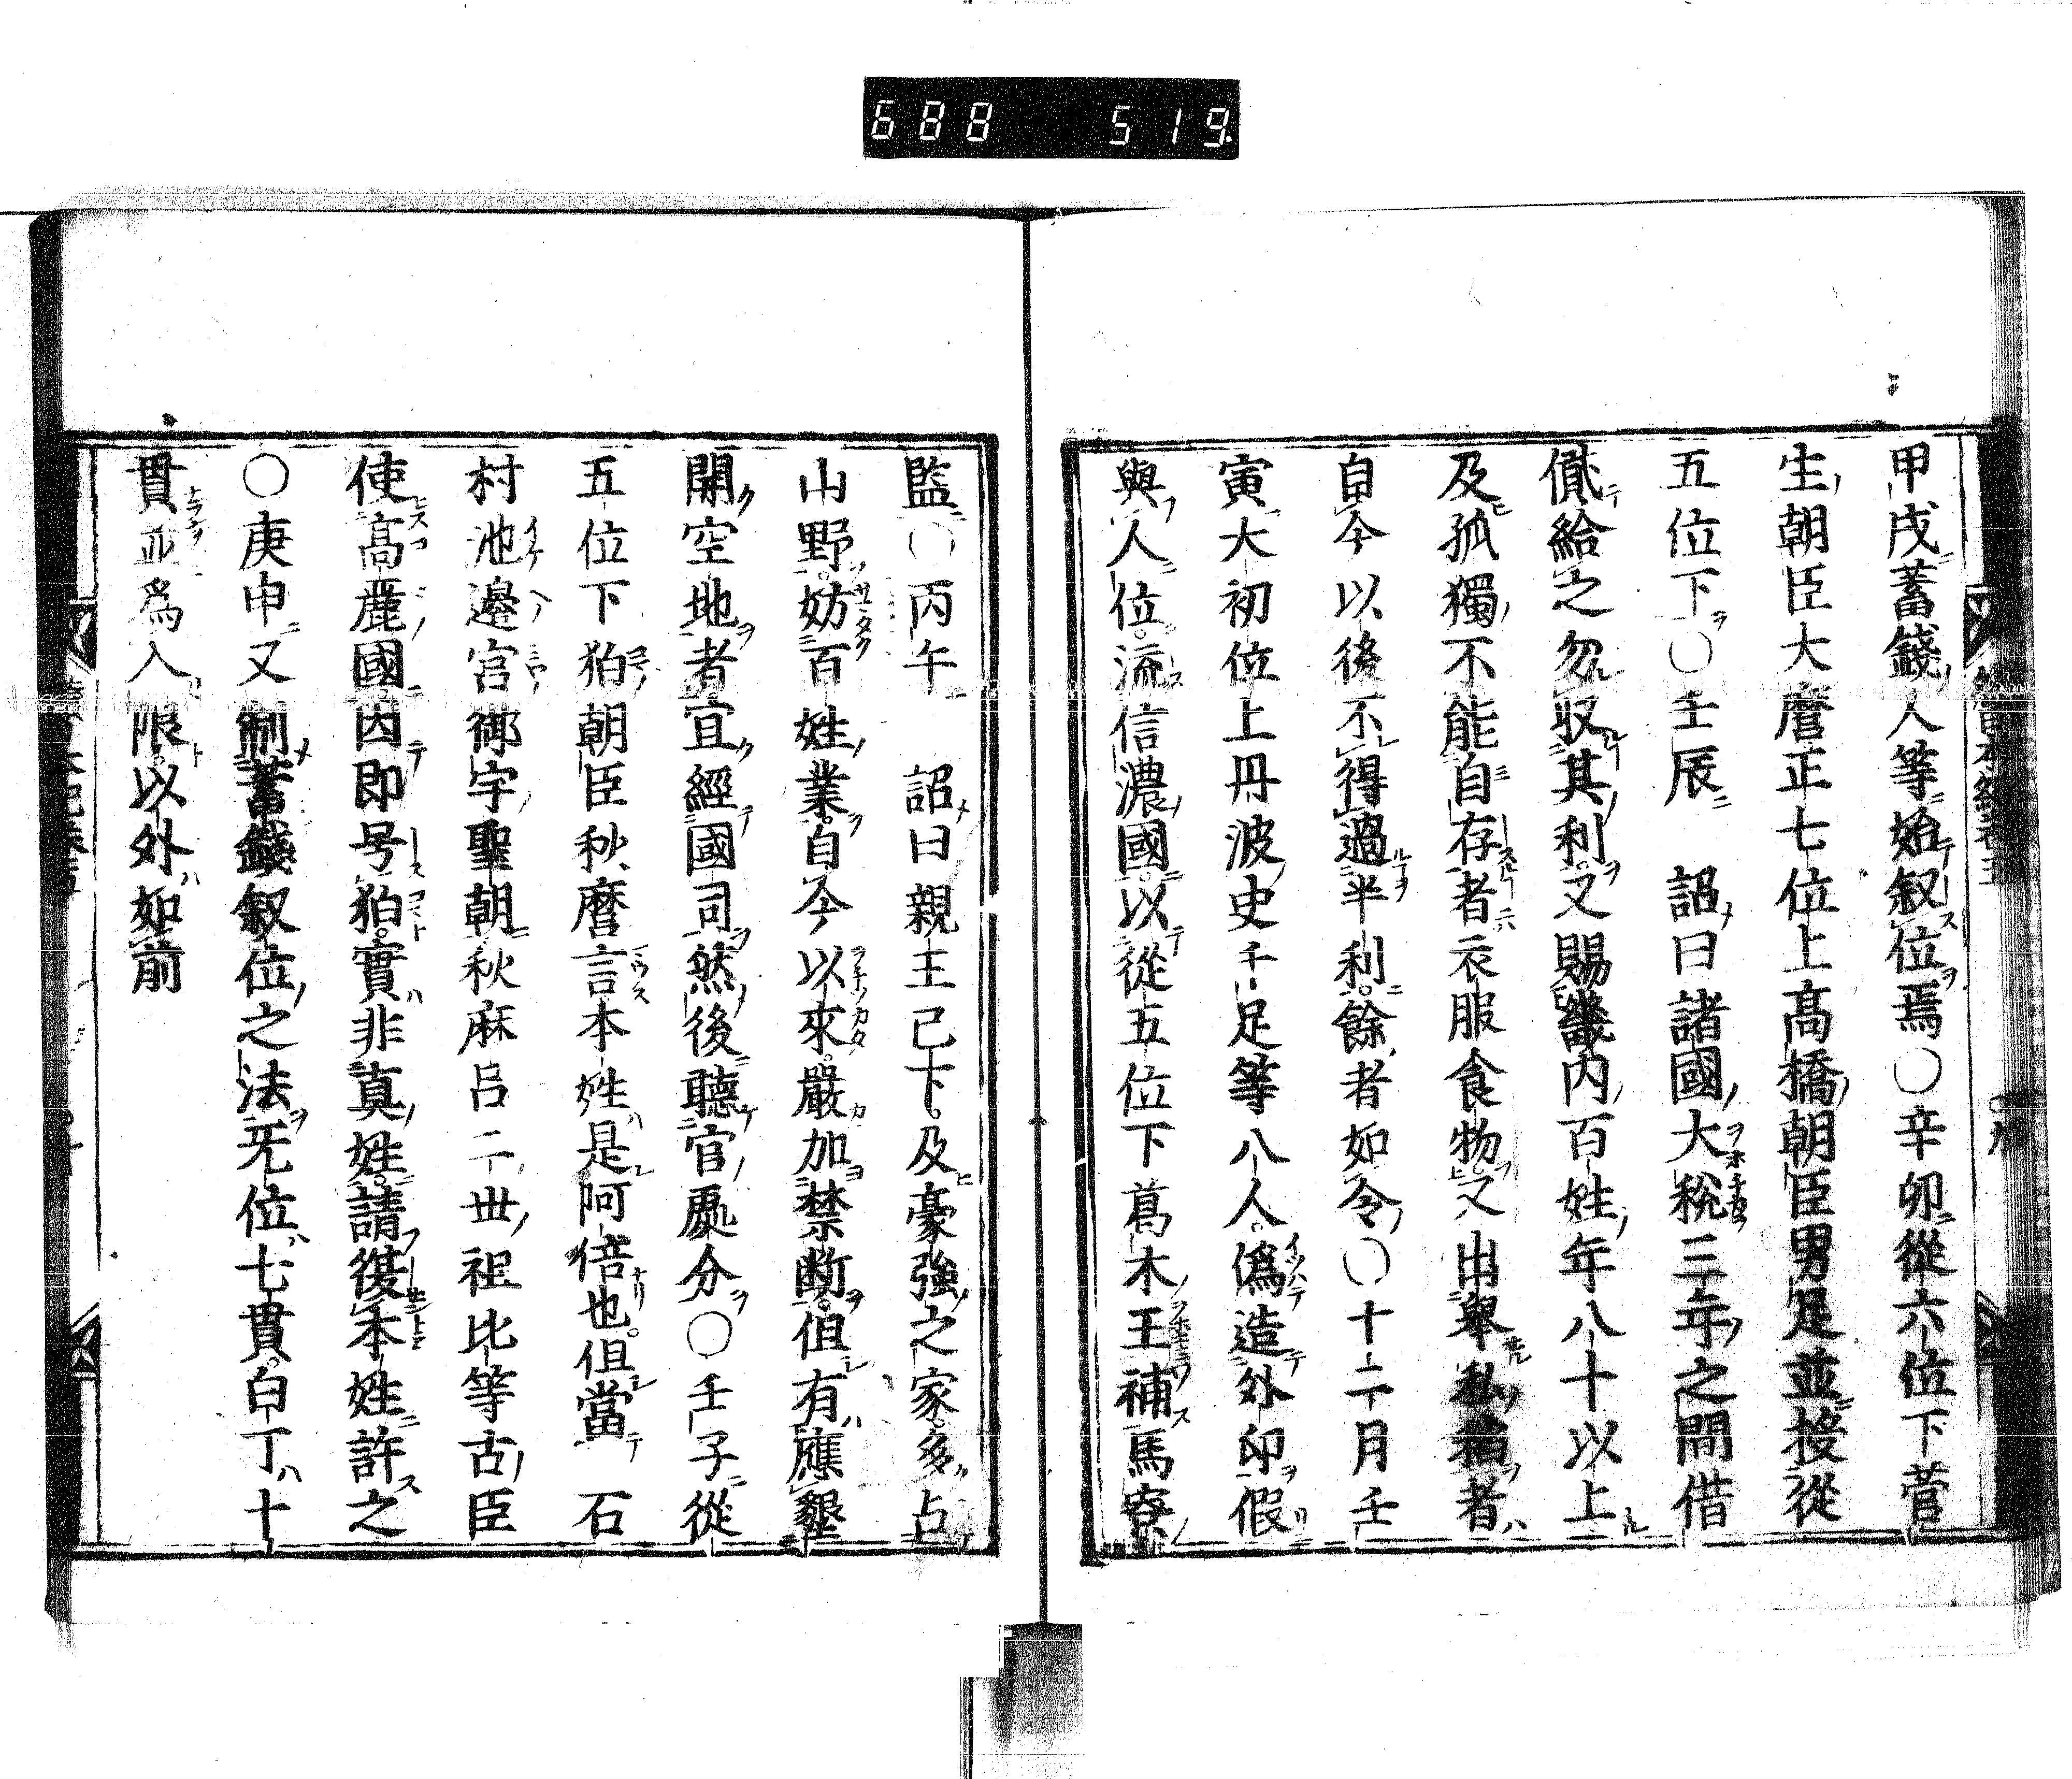 688 519
甲戌蓄錢人等始叙位焉〇辛卯從六位下菅
生朝臣大麿正七位上髙橋朝臣男足並授從
五位下〇壬辰　詔曰諸國大稅三年之間借
貸給之勿収其利又賜畿内百姓年八十以上
及孤獨不能自存者衣服食物又出舉私稻者
自今以後不得過半利餘者如令〇十二月壬
寅大初位上丹波史千足等八人偽造外印假
與人位流信濃國以從五位下葛木王補馬寮
監〇丙午　詔曰親王已下及豪強之家多占
山野妨百姓業自今以來嚴加禁断但有應墾
開空地者宜經國司然後聽官處分〇壬子從
五位下狛朝臣秋麿言本姓是阿倍也但當石
村池邊宮御宇聖朝秋麻呂二世祖比等古臣
使髙麗國因即号狛實非真姓請復本姓許之
〇庚申又制蓄錢叙位之法无位七貫白丁十
貫並爲入限以外如前